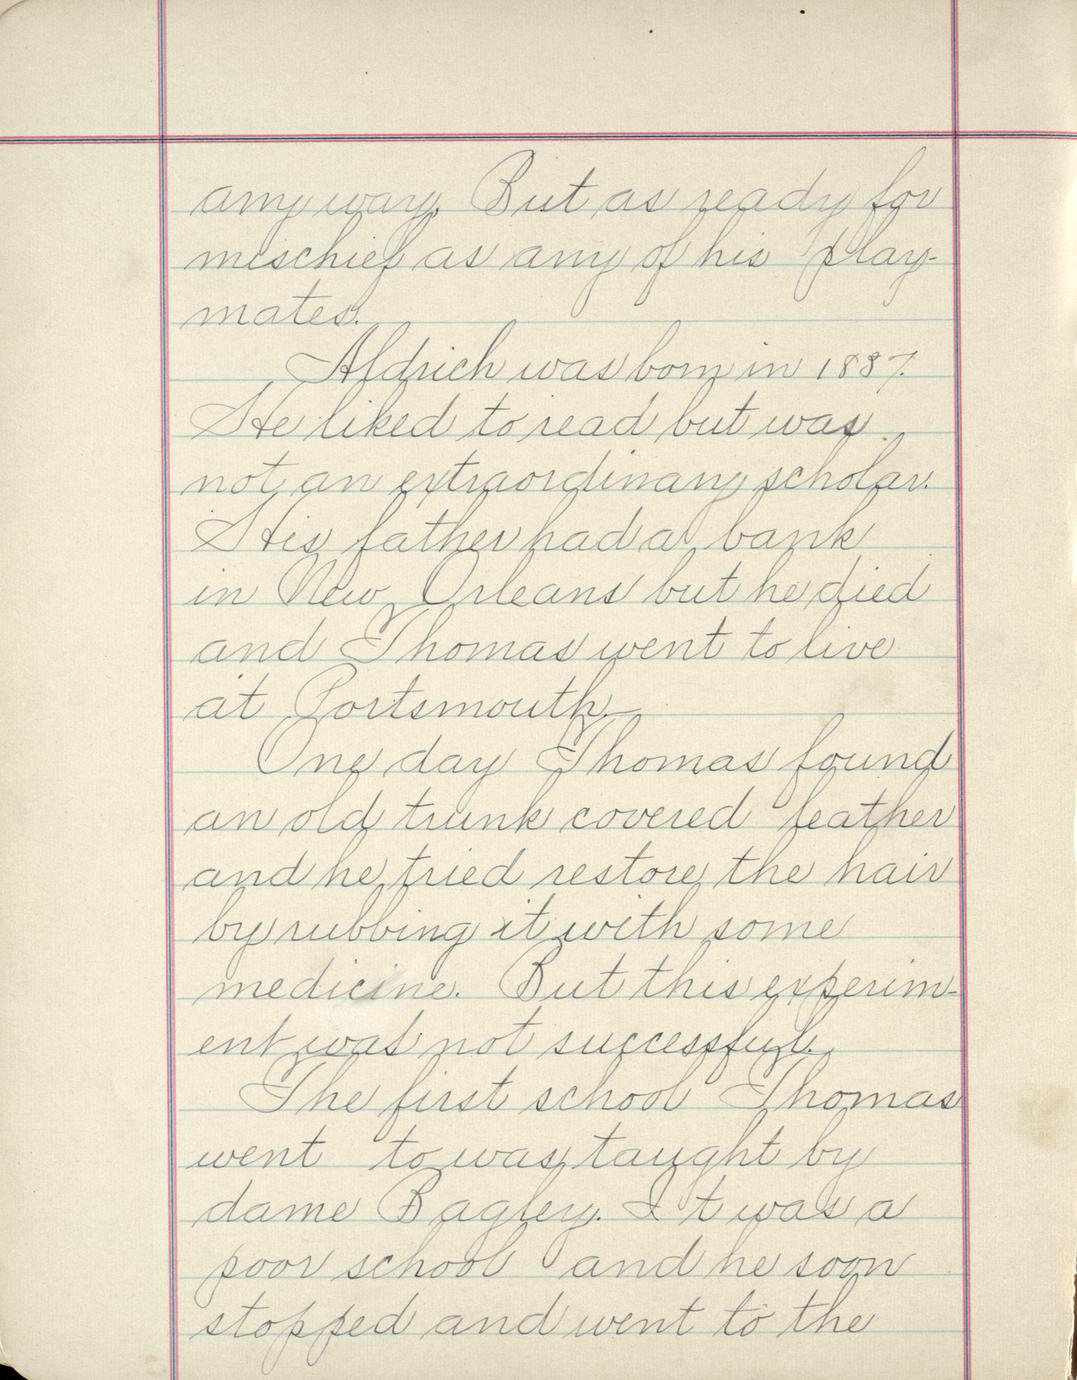 any way. But as ready for
mischief as any of his play-
mates.
Aldrich was born in 1837.
He liked to read but was
not an extraordinary scholar.
His father had a bank
in New Orleans but he died
and Thomas went to live
at Portsmouth.
One day Thomas found
an old trunk covered leather
and he tried restore the hair
by rubbing it with some
medicine. But this experim-
ent was not successful.
The first school Thomas
went to was taught by
dame Bagley. It was a
poor school and he soon
stopped and went to the